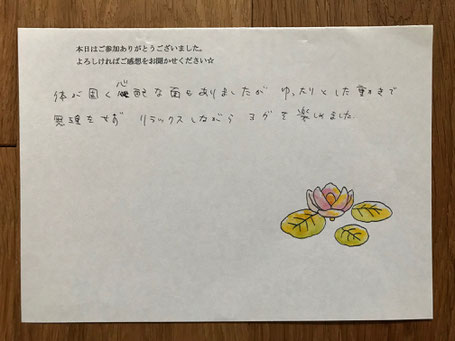 本日はご参加ありがとうございました。
よろしければご感想をお聞かせください☆
体が固く心配な面もありましたが ゆったりとした動きで
無理をせず リラックスしながら ヨガを楽しめました。